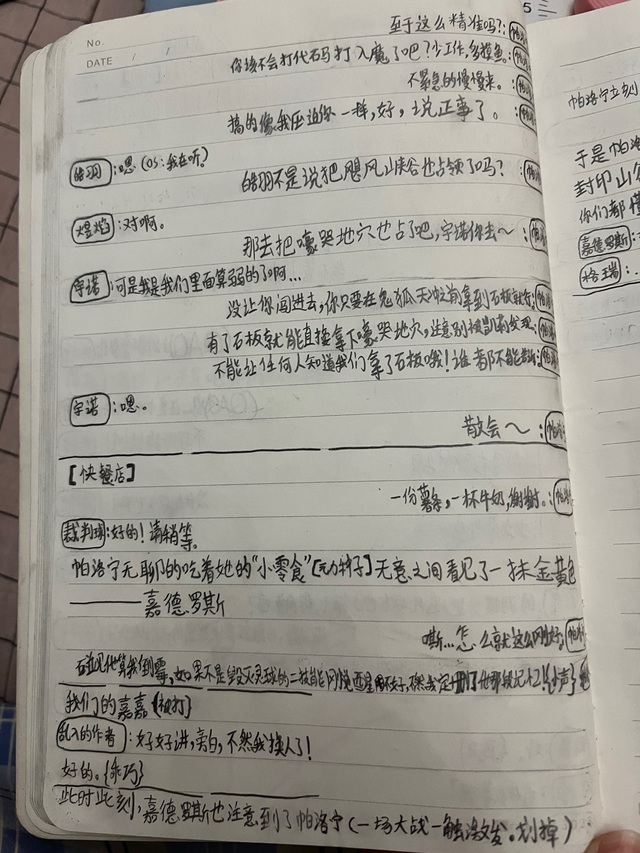 No.
DATE / /
至于这么精准吗?:帕洛
你该不会打代码打入魔了吧?少工作,多摸鱼。
不紧急的慢慢来。
搞的像我压迫你一样,好,说正事了。
皓羽:嗯(OS:我在听)
皓羽不是说把飓风峡谷也占领了吗?
煜焰:对啊。
那去把嚎哭地穴也占了吧,宇诺你去~:
宇诺:可是我是我们里面算弱的了啊...
没让你闯进去,你只要在鬼狐天冲之前拿到石板就行:帕洛
有了石板就能直接拿下嚎哭地穴,注意别被凯莉发现:
不能让任何人知道我们拿了石板哦!谁都不能告诉:
宇诺:嗯。
散会~:帕洛
[快餐店]
一份薯条,一杯牛奶,谢谢。:帕洛
裁判球:好的!请稍等。
帕洛宁无聊的吃着她的“小零食”[元力种子]无意之间看见了一抹金黄色
——嘉德罗斯
嘶...怎么就这么刚好:帕洛
碰见他算我倒霉,如果不是毁灭灵球的二技能用不好,不然我定删了他那段记忆!{小声}
我们的嘉嘉{被打}
乱入的作者:好好讲,旁白,不然我换人了!
好的。{乖巧}
此时此刻,嘉德罗斯也注意到了帕洛宁(一场大战一触激发。划掉)
帕洛宁立刻
于是帕洛
封印山谷
你们都懂
嘉德罗斯:
格瑞: